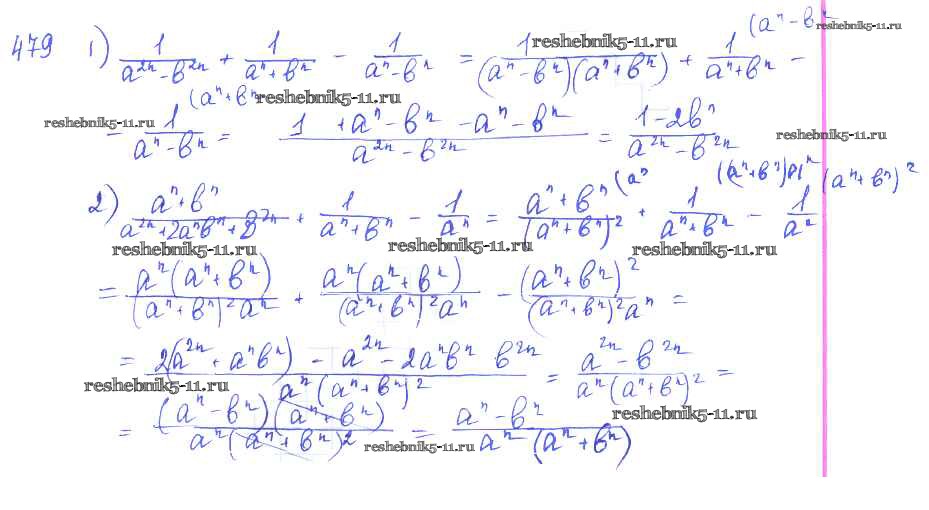 (aⁿ - bⁿ
479 1) 1/(a²ⁿ - b²ⁿ) + 1/(aⁿ + bⁿ) - 1/(aⁿ - bⁿ) = 1/((aⁿ - bⁿ)(aⁿ + bⁿ)) + 1/(aⁿ + bⁿ) -
reshebnik5-11.ru
reshebnik5-11.ru
(aⁿ + bⁿ
reshebnik5-11.ru
- 1/(aⁿ - bⁿ) = (1 + aⁿ - bⁿ - aⁿ - bⁿ)/(a²ⁿ - b²ⁿ) = (1 - 2bⁿ)/(a²ⁿ - b²ⁿ)
reshebnik5-11.ru
reshebnik5-11.ru
(aⁿ (aⁿ + bⁿ)aⁿ (aⁿ + bⁿ)²
2) (aⁿ + bⁿ)/(a²ⁿ + 2aⁿbⁿ + b²ⁿ) + 1/(aⁿ + bⁿ) - 1/aⁿ = (aⁿ + bⁿ)/(aⁿ + bⁿ)² + 1/(aⁿ + bⁿ) - 1/aⁿ
reshebnik5-11.ru reshebnik5-11.ru reshebnik5-11.ru
= aⁿ(aⁿ + bⁿ)/((aⁿ + bⁿ)²aⁿ) + aⁿ(aⁿ + bⁿ)/((aⁿ + bⁿ)²aⁿ) - (aⁿ + bⁿ)²/((aⁿ + bⁿ)²aⁿ) =
= (2(a²ⁿ + aⁿbⁿ) - a²ⁿ - 2aⁿbⁿ b²ⁿ)/(aⁿ(aⁿ + bⁿ)²) = (a²ⁿ - b²ⁿ)/(aⁿ(aⁿ + bⁿ)²) =
reshebnik5-11.ru
reshebnik5-11.ru
= (aⁿ - bⁿ)(aⁿ + bⁿ)/(aⁿ(aⁿ + bⁿ)²) = (aⁿ - bⁿ)/(aⁿ(aⁿ + bⁿ))
reshebnik5-11.ru